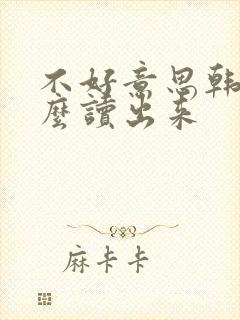 不好意思韩
麼讀出来
麻卡卡